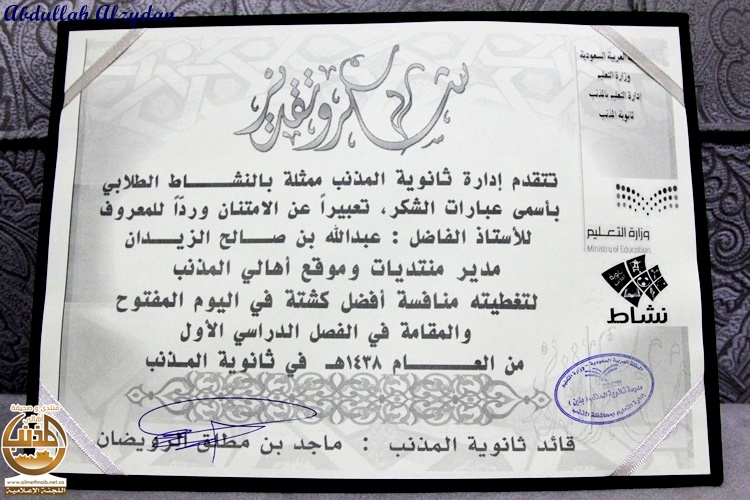 Abdullah Alzydan
شكر وتقدير
العربية السعودية
وزارة التعليم
إدارة التعليم بالمذنب
ثانوية المذنب
تتقدم إدارة ثانوية المذنب ممثلة بالنشـــاط الطلابي
بأسمى عبارات الشكر، تعبيراً عن الامتنان ورداً للمعروف
للأستاذ الفاضل : عبدالله بن صــالح الزيــدان
مدير منتديات وموقع أهالي المذنب
لتغطيته منافسة أفضل كشتة في اليوم المفتوح
والمقامة في الفصل الدراسي الأول
من العـــام ١٤٣٨هـ في ثانوية المذنب
وزارة التعليم
Ministry of Education
نشاط
المملكة العربية السعودية - وزارة التعليم
قائد ثانوية المذنب : ماجد بن مطلق الرويضان
منتدى و صحيفة
المذنب
www.almethnab.net.sa
اللجنة الإعلامية